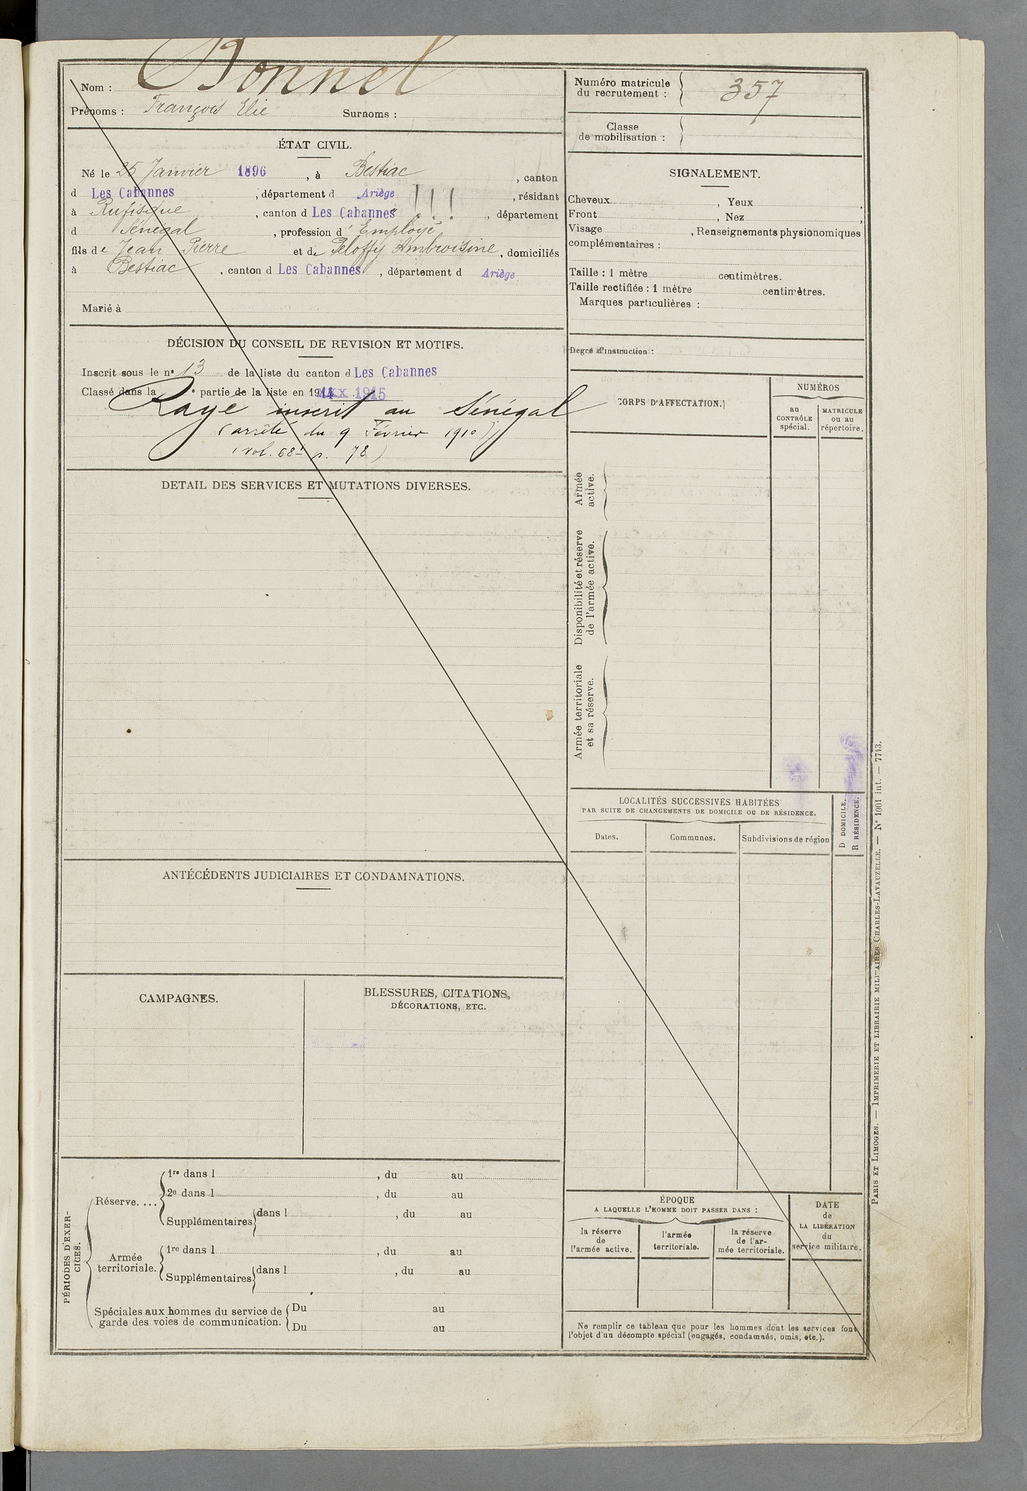 Nom : Bonnel
Prénoms : François Elie Surnoms :
ÉTAT CIVIL.
Né le 25 Janvier 1896, à Bestiac, canton
d Les Cabannes, département d Ariège, résidant
à Rufisque, canton d Les Cabannes !!!, département
d Sénégal, profession d'Employé
fils de Jean Pierre et de Peloffy Ambroisine, domiciliés
à Bestiac, canton d Les Cabannes, département d Ariège
Marié à
DÉCISION DU CONSEIL DE REVISION ET MOTIFS.
Inscrit sous le n° 13 de la liste du canton d Les Cabannes
Classé dans la e partie de la liste en 1915
Rayé inscrit au Sénégal
(arrêté du 9 Février 1910)
(vol. 68 p. 78)
DETAIL DES SERVICES ET MUTATIONS DIVERSES.
ANTÉCÉDENTS JUDICIAIRES ET CONDAMNATIONS.
CAMPAGNES.
BLESSURES, CITATIONS,
DÉCORATIONS, ETC.
PÉRIODES D'EXER-
CICES.
Réserve....
1re dans l , du au
2e dans l , du au
Supplémentaires dans l , du au
Armée
territoriale.
1re dans l , du au
Supplémentaires dans l , du au
Spéciales aux hommes du service de
garde des voies de communication.
Du au
Du au
Numéro matricule
du recrutement : 357
Classe
de mobilisation :
SIGNALEMENT.
Cheveux , Yeux
Front , Nez ,
Visage , Renseignements physionomiques
complémentaires :
Taille : 1 mètre centimètres.
Taille rectifiée : 1 mètre centimètres.
Marques particulières :
Degré d'instruction :
CORPS D'AFFECTATION.
NUMÉROS
au
CONTRÔLE
spécial.
MATRICULE
ou au
répertoire.
Armée
active.
Disponibilité et réserve
de l'armée active.
Armée territoriale
et sa réserve.
LOCALITÉS SUCCESSIVES HABITÉES
PAR SUITE DE CHANGEMENTS DE DOMICILE OU DE RÉSIDENCE.
D DOMICILE.
R RÉSIDENCE.
Dates. Communes. Subdivisions de région
ÉPOQUE
A LAQUELLE L'HOMME DOIT PASSER DANS :
la réserve
de
l'armée active.
l'armée
territoriale.
la réserve
de l'ar-
mée territoriale.
DATE
de
LA LIBÉRATION
du
service militaire.
Ne remplir ce tableau que pour les hommes dont les services font
l'objet d'un décompte spécial (engagés, condamnés, omis, etc.).
PARIS ET LIMOGES. — IMPRIMERIE ET LIBRAIRIE MILITAIRES CHARLES-LAVAUZELLE. — N° 1001 int. — 7743.